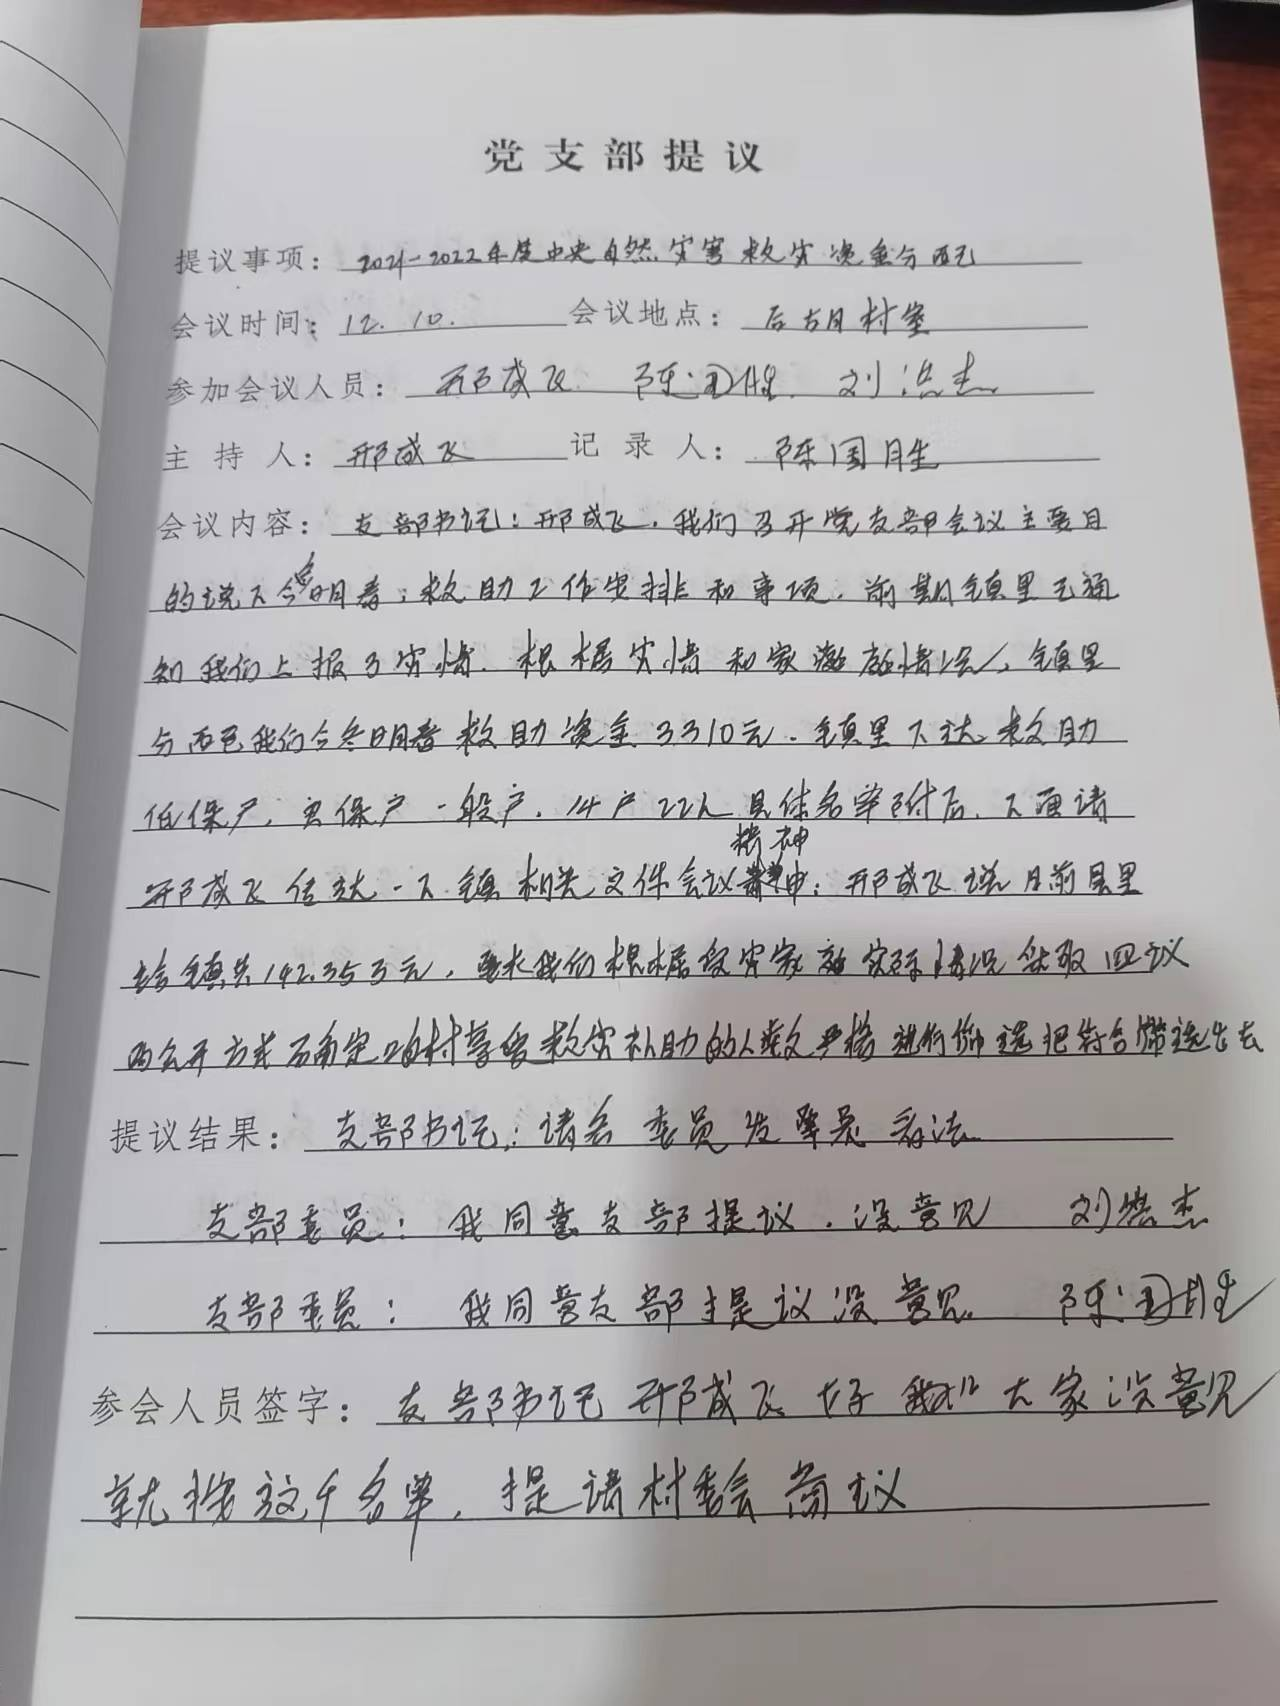 党支部提议
提议事项：2021-2022年度中央自然灾害救灾资金分配
会议时间：12.10. 会议地点：后胡村室
参加会议人员：邢成飞 陈国胜 刘洪杰
主持人：邢成飞 记录人：陈国胜
会议内容：支部书记：邢成飞，我们召开党支部会议主要目
的说下今冬明春：救助工作安排和事项，前期镇里已通
知我们上报了灾情，根据灾情和家庭情况，镇里
分配我们今冬明春救助资金3310元，镇里下达救助
低保户，一般户，14户22人具体名单附后，下面请
邢成飞传达一下镇相关文件会议精神：邢成飞说目前县里
给镇共142.353万元，要求我们根据受灾家庭实际情况采取四议
两公开方式确定咱村享受救灾补助的人数严格进行筛选把符合筛选出去
提议结果：支部书记：请各委员发表意见看法
支部委员：我同意支部提议，没意见 刘洪杰
支部委员：我同意支部提议没意见 陈国胜
参会人员签字：支部书记邢成飞 好 大家没意见
就按这个名单，提请村委会商议